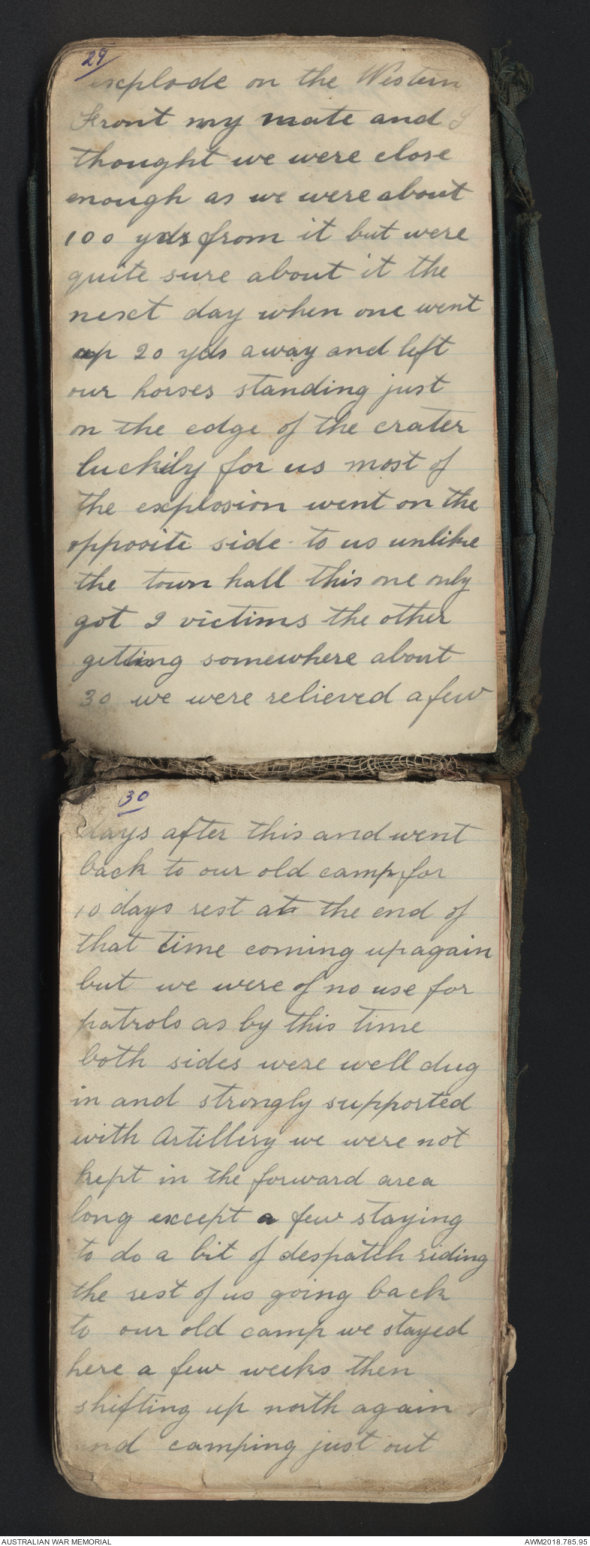 29
explode on the Western
Front my mate and I
thought we were close
enough as we were about
100 yds from it but were
quite sure about it the
next day when one went
up 20 yds away and left
our horses standing just
on the edge of the crater
luckily for us most of
the explosion went on the
opposite side to us unlike
the town hall this one only
got 2 victims the other
getting somewhere about
30 we were relieved a few
30
days after this and went
back to our old camp for
10 days rest at the end of
that time coming up again
but we were of no use for
patrols as by this time
both sides were well dug
in and strongly supported
with Artillery we were not
kept in the forward area
long except a few staying
to do a bit of despatch riding
the rest of us going back
to our old camp we stayed
here a few weeks then
shifting up north again
and camping just out
AUSTRALIAN WAR MEMORIAL
AWM2018.785.95